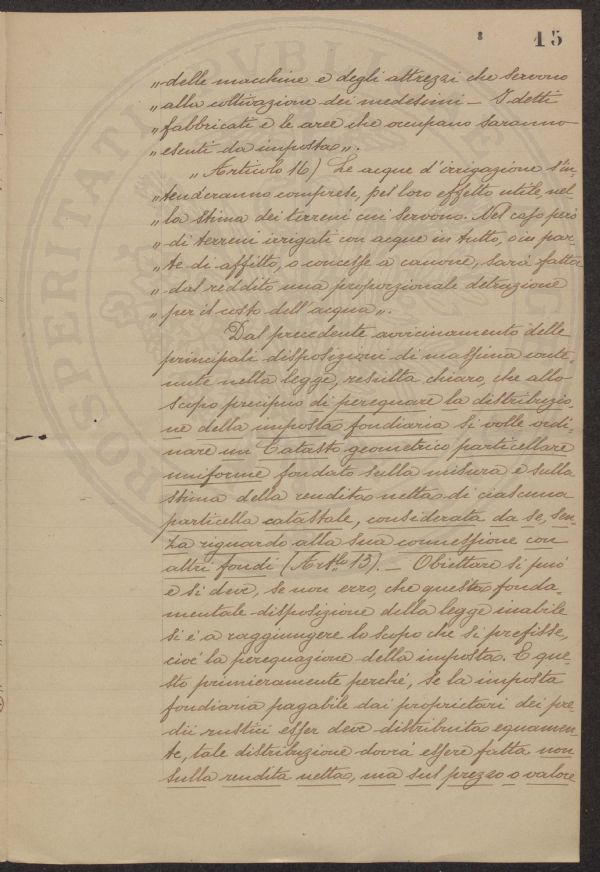 8 15
„ delle macchine e degli attrezzi che servono
„ alla coltivazione dei medesimi – I detti
„ fabbricati e le aree che occupano saranno
„ esenti da imposta „.
„ Articolo 16) Le acque d'irrigazione s'in-
„ tenderanno comprese, pel loro effetto utile, nel
„ la stima dei terreni cui servono. Nel caso però
„ di terreni irrigati con acque in tutto, o in par-
„ te di affitto, o concesse a canone, sarà fatta
„ dal reddito una proporzionale detrazione
„ per il costo dell'acqua „.
Dal precedente avvicinamento delle
principali disposizioni di massima conte
nute nella legge, resulta chiaro, che allo
scopo precipuo di perequare la distribuzio-
ne della imposta fondiaria si volle ordi-
nare un Catasto geometrico particellare
uniforme fondato sulla misura e sulla
stima della rendita netta di ciascuna
particella catastale, considerata da se, sen-
za riguardo alla sua connessione con
altri fondi (Artlo 13). – Obiettare si può
e si deve, se non erro, che questa fonda-
mentale disposizione della legge inabile
si è a raggiungere lo scopo che si prefisse,
cioè la perequazione della imposta. E que-
sto primieramente perché, se la imposta
fondiaria pagabile dai proprietari dei pre
dii rustici esser deve distribuita equamen
te, tale distribuzione dovrà essere fatta non
sulla rendita netta, ma sul prezzo o valore
PROSPERITATI PVBLICAE